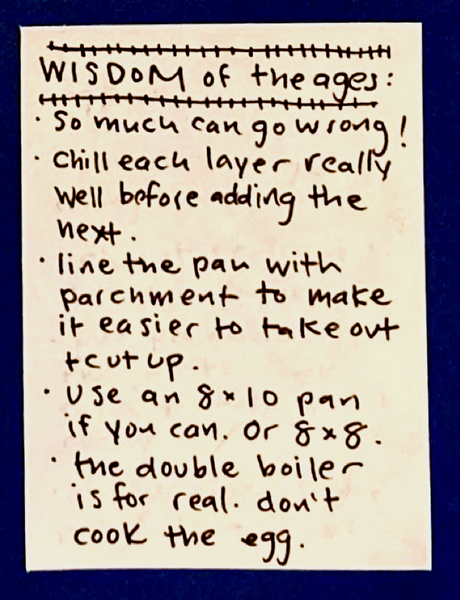 WISDOM of the ages:
· So much can go wrong!
· Chill each layer really
well before adding the
next.
· line the pan with
parchment to make
it easier to take out
+ cut up.
· Use an 8x10 pan
if you can. Or 8x8.
· the double boiler
is for real. don't
cook the egg.